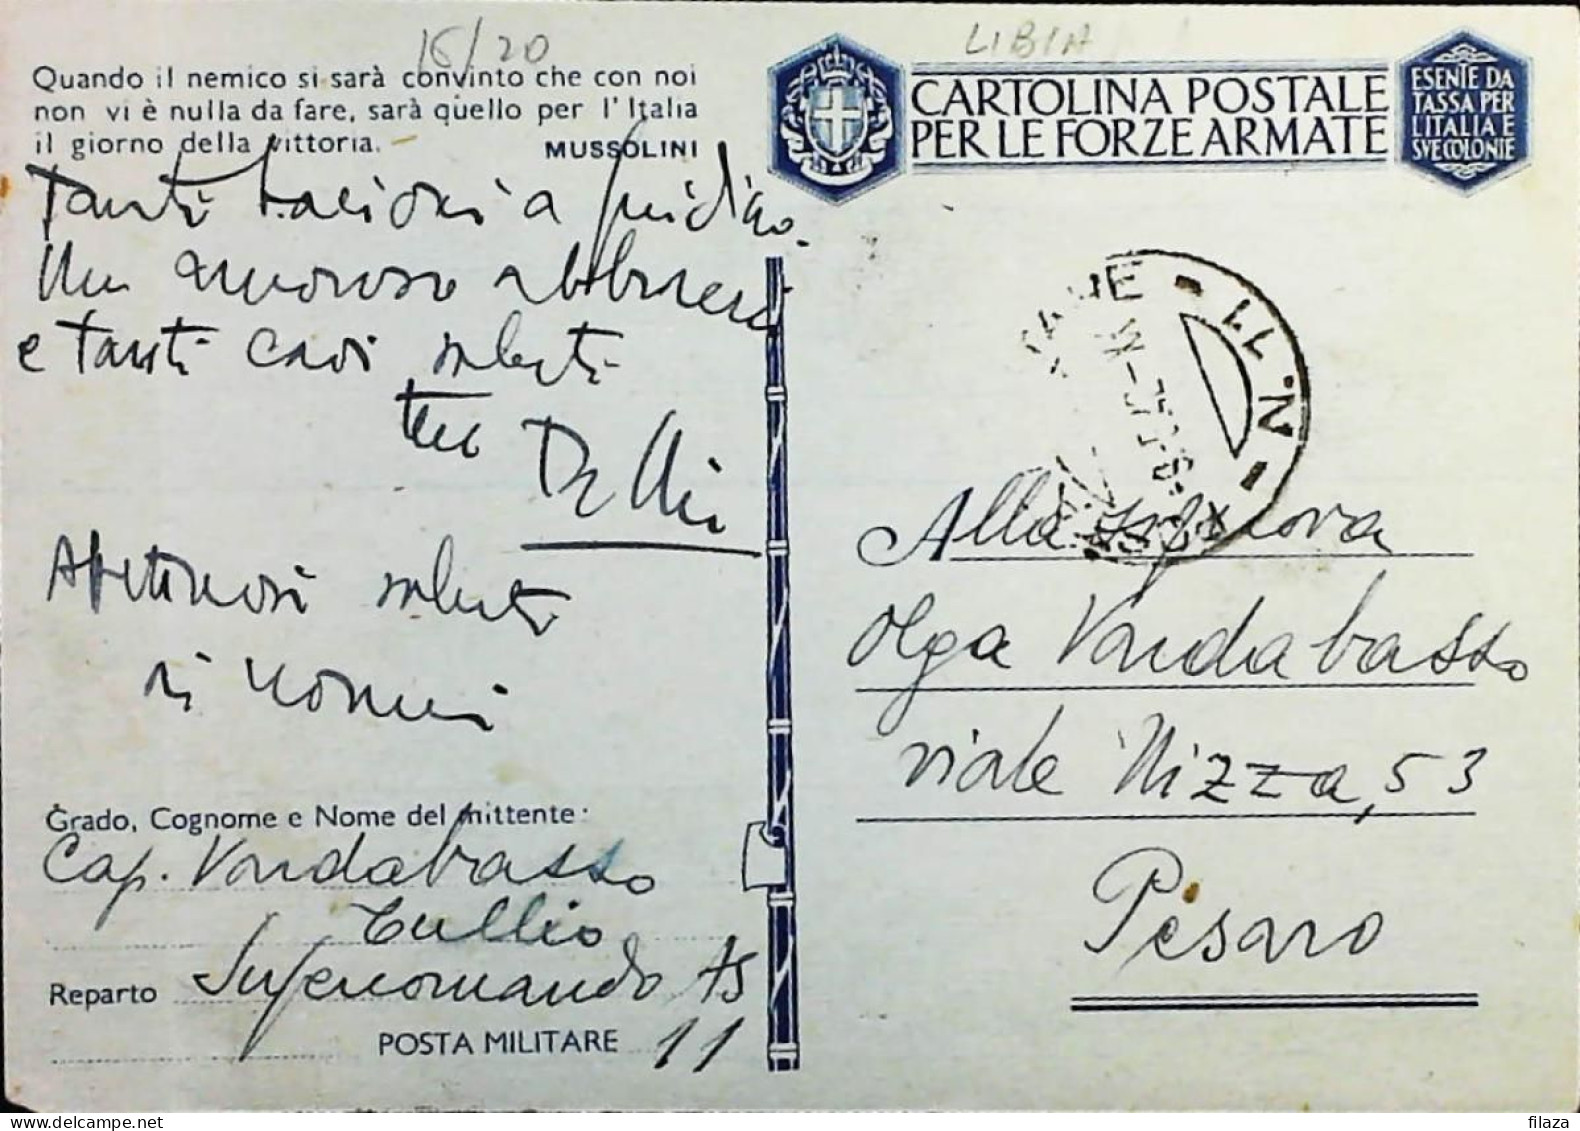 15/20
LIBIA
Quando il nemico si sarà convinto che con noi
non vi è nulla da fare, sarà quello per l'Italia
il giorno della vittoria.
MUSSOLINI
CARTOLINA POSTALE
PER LE FORZE ARMATE
ESENTE DA
TASSA PER
L'ITALIA E
SVE COLONIE
Tanti bacioni a
Un amoroso abbraccio
e tanti cari saluti
tuo
Affettuosi saluti
N. 11
Alla Signora
Olga Vondabasso
viale Nizza, 53
Pesaro
Grado, Cognome e Nome del mittente:
Cap. Vondabasso
Tullio
Reparto Supercomando AS
POSTA MILITARE 11